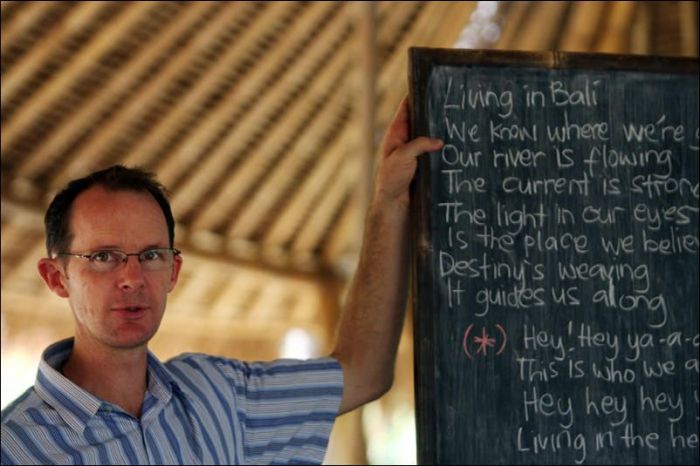 Living in Bali
We know where we're
Our river is flowing
The current is stron
The light in our eyes
Is the place we belie
Destiny's weaving
It guides us along
(*) Hey! Hey ya-a-a
This is who we a
Hey hey hey
Living in the he